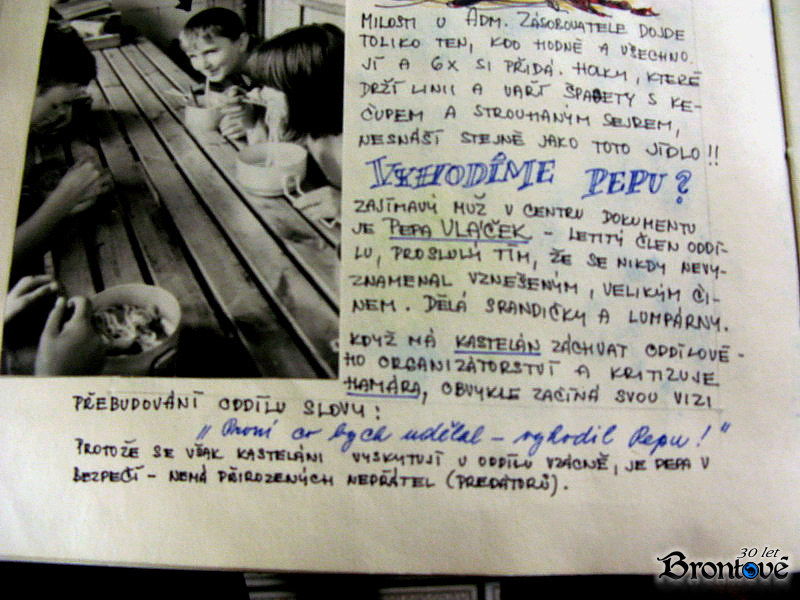 MILOSTI U ADM. ZÁSOBOVATELE DOJDE
TOLIKO TEN, KDO HODNĚ A VŠECHNO
JÍ A 6X SI PŘIDÁ. HOLKY, KTERÉ
DRŽÍ LINII A VAŘÍ ŠPAGETY S KE-
ČUPEM A STROUHANÝM SEJREM,
NESNÁŠÍ STEJNĚ JAKO TOTO JÍDLO!!
VYHODÍME PEPU?
ZAJÍMAVÝ MUŽ V CENTRU DOKUMENTU
JE PEPA VLÁČEK - LETITÝ ČLEN ODDÍ-
LU, PROSLULÝ TÍM, ŽE SE NIKDY NEVY-
ZNAMENAL VZNEŠENÝM, VELIKÝM ČI-
NEM. DĚLÁ SRANDIČKY A LUMPÁRNY.
KDYŽ MÁ KASTELÁN ZÁCHVAT ODDÍLOVÉ-
HO ORGANIZÁTORSTVÍ A KRITIZUJE
HAMÁRA, OBVYKLE ZAČÍNÁ SVOU VIZI
PŘEBUDOVÁNÍ ODDÍLU SLOVY:
„První co bych udělal - vyhodil Pepu!"
PROTOŽE SE VŠAK KASTELÁNI VYSKYTUJÍ V ODDÍLU VZÁCNĚ, JE PEPA V
BEZPEČÍ - NEMÁ PŘIROZENÝCH NEPŘÁTEL (PREDÁTORŮ).
30 let
Brontové